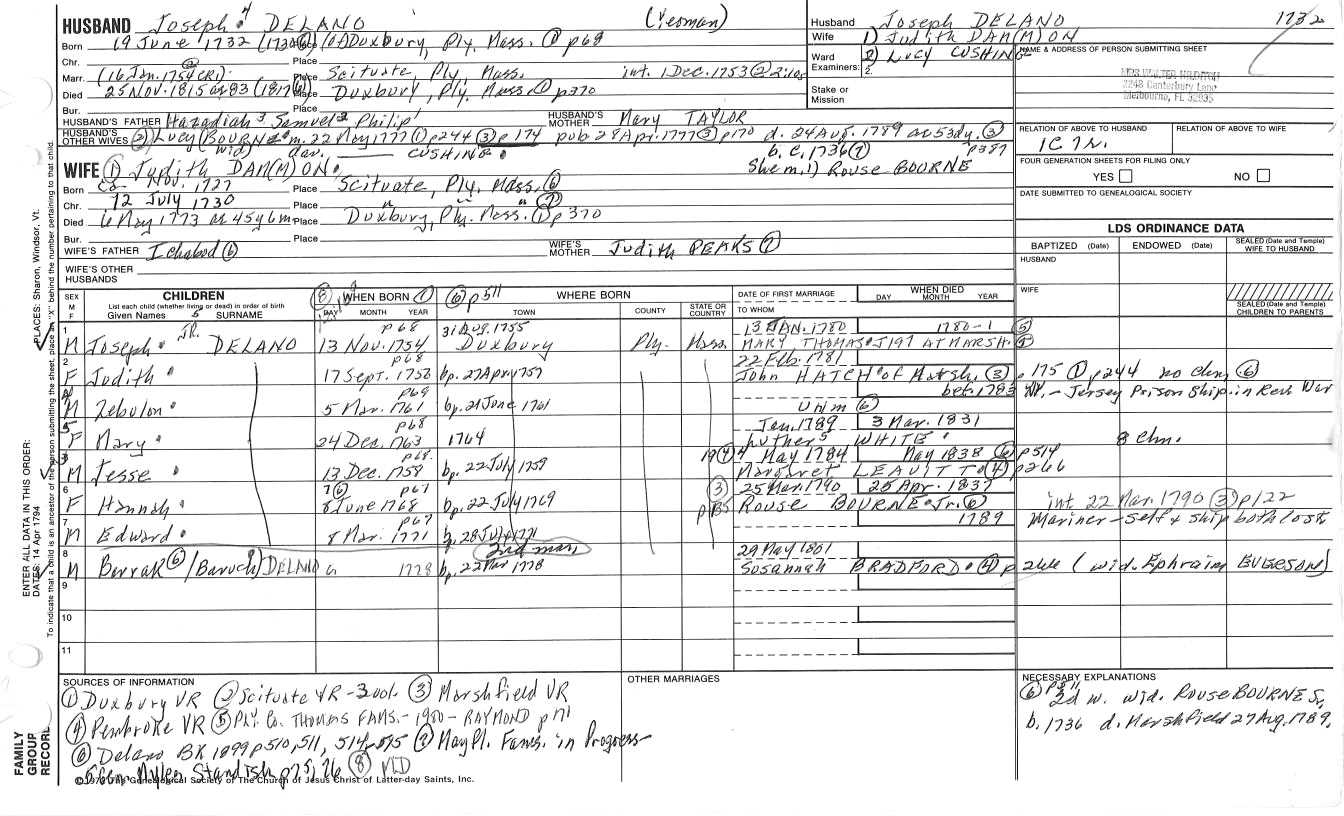 HUSBAND Joseph 4 DELANO (Yeoman)
Born 19 June 1732 Place Duxbury, Ply, Mass. ① p68
Chr. Place
Marr. (16 Jan. 1754 CR1) Place Scituate, Ply, Mass. int. 1 Dec. 1753 ② 2:105
Died 25 Nov. 1815 ae 83 (1817 ⑥) Place Duxbury, Ply, Mass ① p370
Bur. Place
HUSBAND'S FATHER Hazadiah 3 Samuel 2 Philip 1 HUSBAND'S MOTHER Mary TAYLOR
HUSBAND'S OTHER WIVES ② Lucy (BOURNE) m. 22 May 1777 ① p244 ③ p174 pub 28 Apr. 1777 ③ p170 d. 24 Aug. 1789 ae 53 dy. ③ p387
(wid) dau. CUSHING b. c. 1736 ⑦
She m. 1) Rouse BOURNE
WIFE ① Judith DAM(M)ON
Born ca Nov. 1727 Place Scituate, Ply, Mass. ⑥
Chr. 12 July 1730 Place " " " ⑦
Died 6 May 1773 ae 45y 6m Place Duxbury, Ply. Mass. ① p370
Bur. Place
WIFE'S FATHER Ichabod ⑥ WIFE'S MOTHER Judith PEAKS ⑦
WIFE'S OTHER HUSBANDS
Husband Joseph DELANO 1732
Wife 1) Judith DAM(M)ON
2) Lucy CUSHING
Ward Examiners: 1. 2.
Stake or Mission
NAME & ADDRESS OF PERSON SUBMITTING SHEET
2248 Canterbury Lane
Melbourne, FL 32935
RELATION OF ABOVE TO HUSBAND RELATION OF ABOVE TO WIFE
1C 7R.
FOUR GENERATION SHEETS FOR FILING ONLY
YES NO
DATE SUBMITTED TO GENEALOGICAL SOCIETY
LDS ORDINANCE DATA
BAPTIZED (Date) ENDOWED (Date) SEALED (Date and Temple) WIFE TO HUSBAND
HUSBAND
WIFE
SEALED (Date and Temple) CHILDREN TO PARENTS
SEX M F CHILDREN List each child (whether living or dead) in order of birth Given Names 5 SURNAME
⑧ WHEN BORN ① DAY MONTH YEAR
⑥ p511 WHERE BORN TOWN COUNTY STATE OR COUNTRY
DATE OF FIRST MARRIAGE TO WHOM WHEN DIED DAY MONTH YEAR
1 p68 31 Aug. 1755 13 JAN. 1780 1780-1 ⑤
M Joseph JR. DELANO 13 Nov. 1754 Duxbury Ply. Mass. MARY THOMAS J197 AT MARSH.
2 p68 22 Feb. 1781
F Judith 17 Sept. 1758 bp. 27 Apr 1757 John HATCH of Marsh. ③ p175 ① p244 no chn ⑥
p69 bef. 1783 - Jersey Prison Ship in Rev War
M Zebulon 5 Mar. 1761 bp. 21 June 1761 Unm ⑥
5 p68 Jan. 1789 3 Mar. 1831
F Mary 24 Dec. 1763 1764 Luther 5 WHITE 8 chn.
3 p68 4 May 1784 May 1838 ⑥ p514
M Jesse 13 Dec. 1758 bp. 22 July 1759 Margaret LEAVITT ④ p266
6 7 ⑥ p67 ③ p135 25 Mar. 1790 25 Apr. 1837
F Hannah 8 June 1768 bp. 22 July 1769 Rouse BOURNE Jr. ⑥ int 22 Mar. 1790 ③ p122
7 p67 1789 Mariner - Self & Ship both lost
M Edward 8 Mar. 1771 b. 28 July 1771
8 2nd mar. 29 May 1801
M Barrak ⑥ /(Baruch) DELANO 1778 bp. 22 Mar 1778 Susannah BRADFORD ④ p266 (wid. Ephraim EVERSON)
9
10
11
SOURCES OF INFORMATION
① Duxbury VR ② Scituate VR-300L. ③ Marshfield VR
④ Pembroke VR ⑤ PLY. Co. THOMAS FAMS.- 1980 - RAYMOND p171
⑥ Delano BK 1899 p510, 511, 514, 515 ⑦ MayFl. Fams. in Progress
5 Gen. Myles Standish p25, 26 ⑧ VLD
OTHER MARRIAGES
NECESSARY EXPLANATIONS
⑥ p511
2d w. wid. Rouse BOURNE Sr,
b. 1736 d. Marshfield 27 Aug. 1789.
FAMILY GROUP RECORD
ENTER ALL DATA IN THIS ORDER:
DATES: 14 Apr 1794
PLACES: Sharon, Windsor, Vt.
To indicate that a child is an ancestor of the person submitting the sheet, place an "X" behind the number pertaining to that child.
Genealogical Society of The Church of Jesus Christ of Latter-day Saints, Inc.